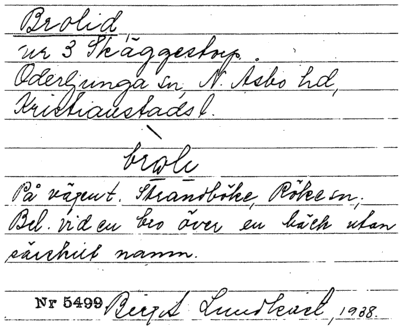 Brolid,
ur 3 Skäggestorp.
Oderljunga sn, N. Åsbo hd,
Kristianstads l.
broli
På vägen t. Strandböke, Röke sn,
Bel. vid en bro över en bäck utan
särskilt namn.
Nr 5499 Birgit Lundkvist, 1938.